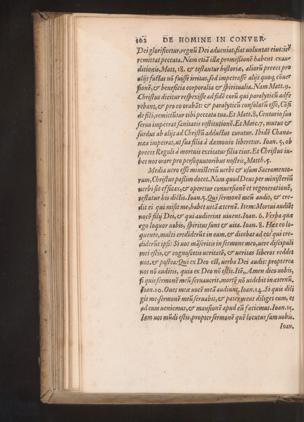 162 DE HOMINE IN CONVER-
Dei glorificetur, regnũ Dei adueniat, fiat voluntas eius: &
remittat peccata. Nam etiã illæ promissionẽ habent exau-
ditionis, Matt. 18. & testantur historiæ, aliorũ preces pro
aliis factas nõ fuisse irritas, sed impetrasse aliis quoq, conuer
sionẽ, & beneficia corporalia & spiritualia. Nam Matt. 9.
Christus dicitur respexisse ad fidẽ eorũ qui paralyticũ adfe
rebant, & pro eo orabãt: & paralyticũ consolatũ esse, Cõfi
de fili, remittũtur tibi peccata tua. Et Matt. 8. Centurio suo
seruo impetrat sanitatis restitutionẽ. Et Marc. 7. mutus &
surdus ab aliis ad Christũ adductus curatur. Ibidẽ Chana-
næa impetrat, ut sua filia à dæmonio liberetur. Ioan. 5. ob
preces Reguli à mortuis excitatur filia eius. Et Christus iu-
bet nos orare pro persequutoribus nostris, Matth. 5.
Media uero esse ministeriũ uerbi & usum Sacramento-
rum, Christus passim docet. Nam quod Deus per ministeriũ
uerbi sit efficax, & operetur conuersionẽ et regenerationẽ,
testatur his dictis. Ioan. 5. Qui sermonẽ meũ audit, & cre-
dit ei qui misit me, habet uitã æternã. Item. Mortui audiẽt
uocẽ filij Dei, & qui audierint uiuent. Ioan. 6. Verba quæ
ego loquor uobis, spiritus sunt & uita. Ioan. 8. Hæc eo lo-
quente, multi crediderũt in eum, & dicebat ad eos qui cre-
diderãt ipsi: Si uos mãseritis in sermone meo, uere discipuli
mei estis, & cognoscetis ueritatẽ, & ueritas liberos reddet
uos. & postea: Qui ex Deo est, uerba Dei audit: propterea
uos nõ auditis, quia ex Deo nõ estis. Itẽ, Amen dico uobis,
si quis sermonẽ meũ seruauerit, mortẽ nõ uidebit in æternũ.
Ioan. 10. Oues meæ uocẽ meã audiunt. Ioan. 14. Si quis dili
git me, sermonẽ meũ seruabit, & pater meus diliget eum, et
ad eum ueniemus, & mansionẽ apud eũ faciemus. Ioan. 15.
Iam uos mũdi estis, propter sermonẽ quẽ locutus sum uobis.
Ioan.